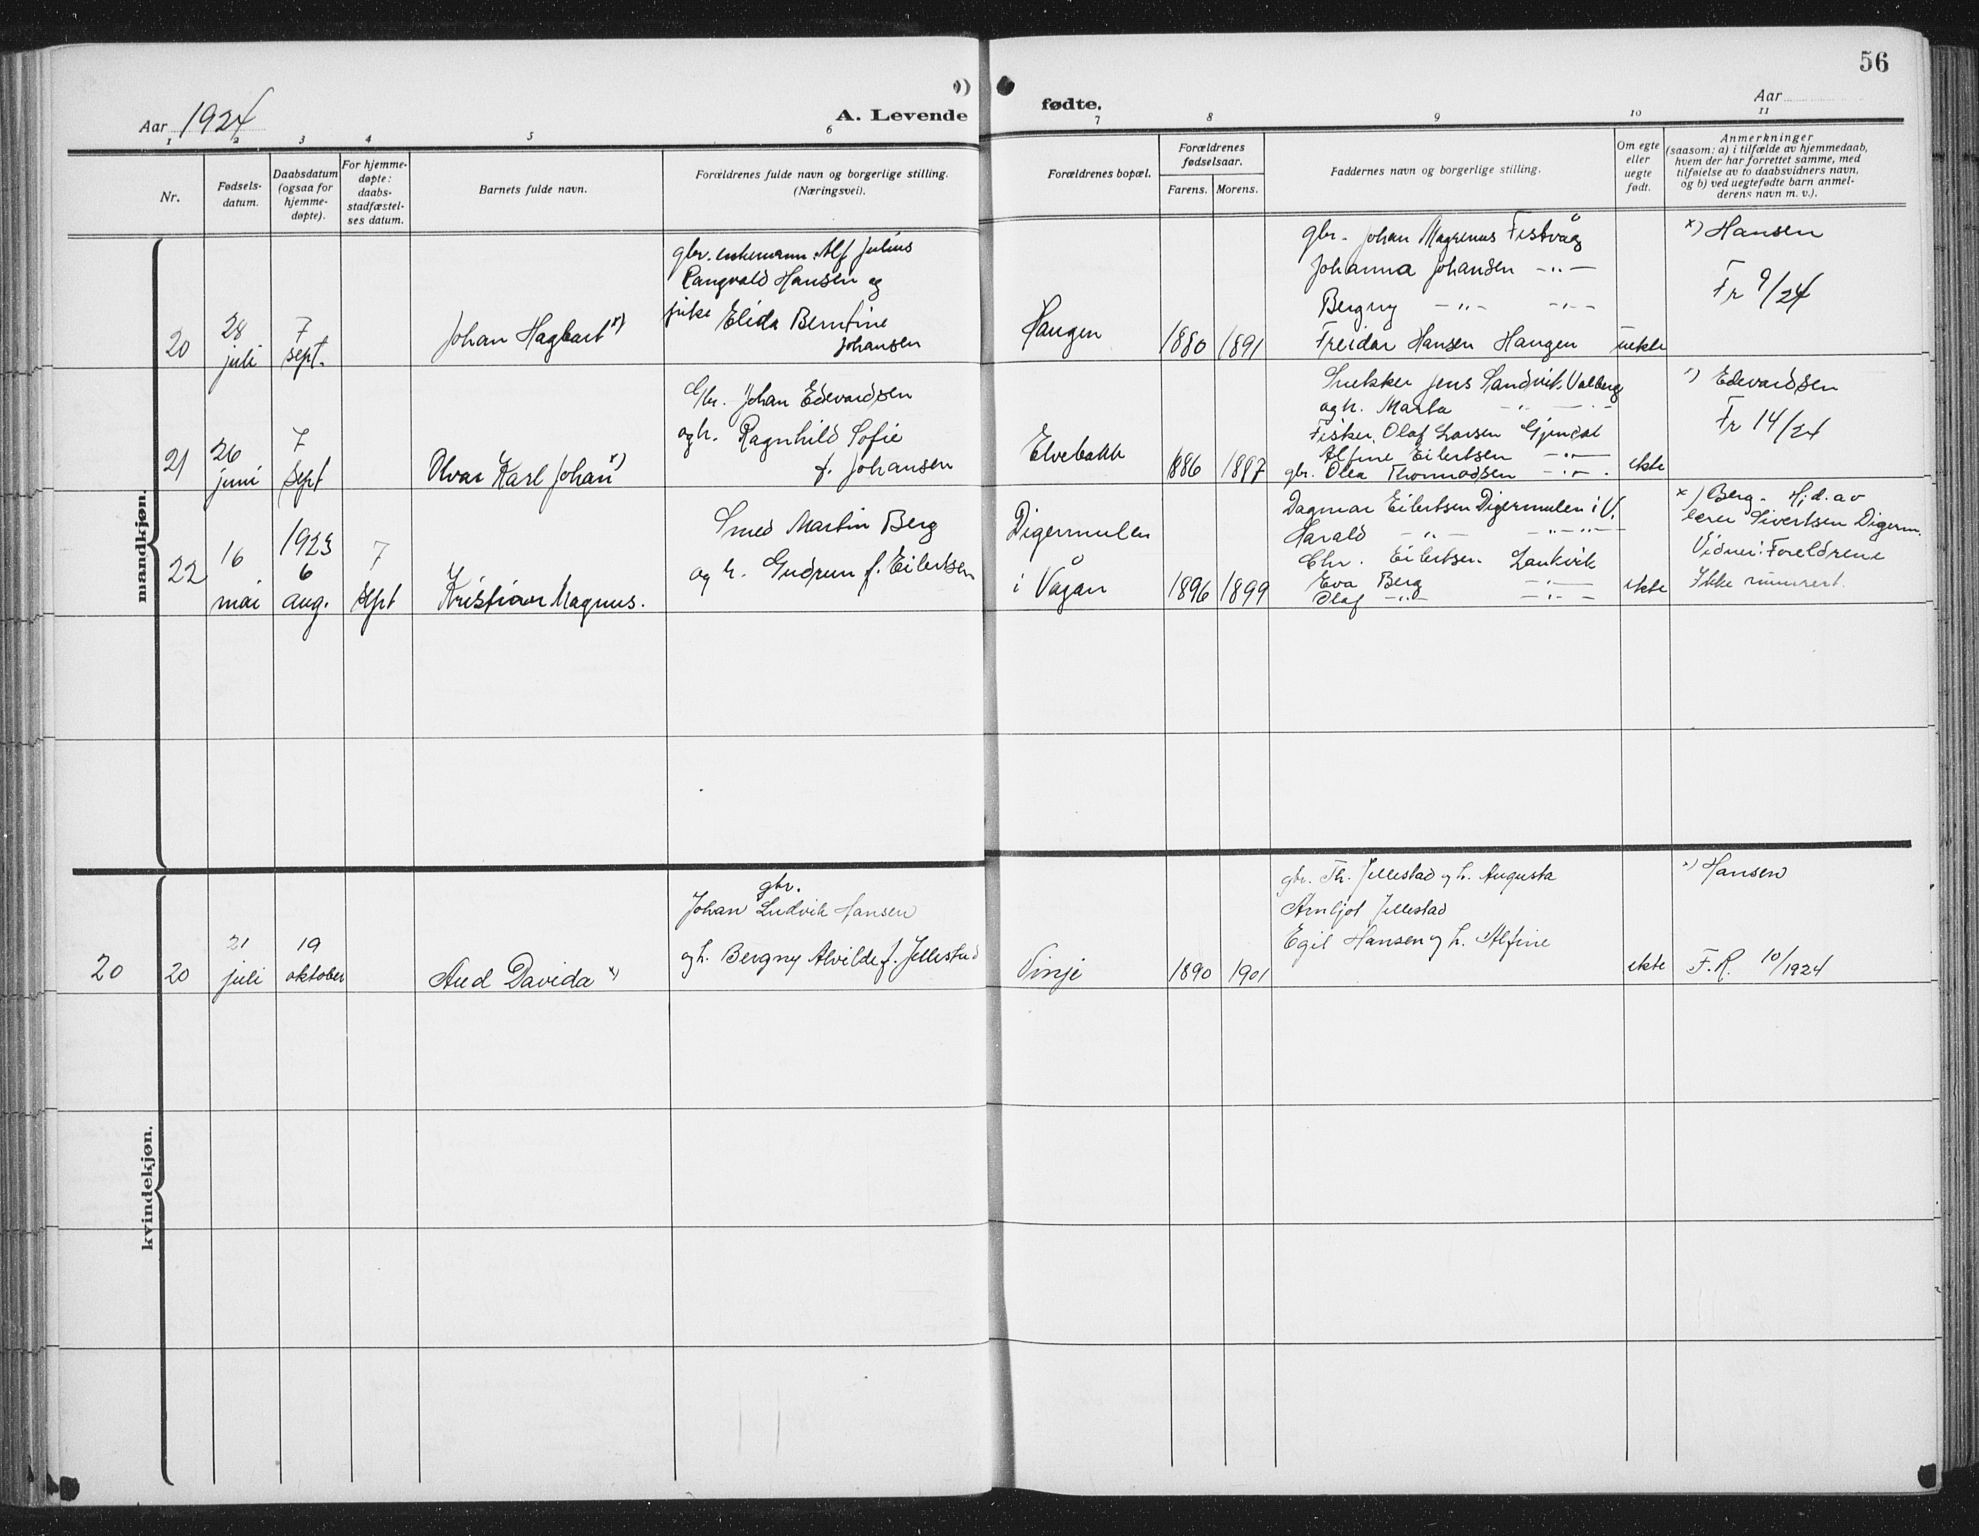 56
Aar 1924
A. Levende
fødte.
Aar
1 2 3 4 5 6 7 8 9 10 11
Nr.
Fødsels-
datum.
Daabsdatum
(ogsaa for
hjemme-
døpte).
For hjemme-
døpte:
daabs-
stadfæstel-
ses datum.
Barnets fulde navn.
Forældrenes fulde navn og borgerlige stilling.
(Næringsvei).
Forældrenes bopæl.
Forældrenes
fødselsaar.
Farens. Morens.
Faddernes navn og borgerlige stilling.
Om egte
eller
uegte
født.
Anmerkninger
(saasom: a) i tilfælde av hjemmedaab,
hvem der har forrettet samme, med
tilføielse av to daabsvidners navn,
og b) ved uegtefødte barn anmel-
derens navn m. v.).
mandkjøn.
20
28
juli
7
sept.
Johan Hagbart x)
gbr. enkemann Alf Julius
Rangvald Hansen og
pike Elida Berntine
Johansen
Haugen
1880 1891
gbr. Johan Magrenus Festvåg
Johanna Johansen -"-
Bergny -"- -"-
Freidar Hansen Haugen
uekte
x) Hansen
Fr 9/24
21
26
juni
7
sept
Olvar Karl Johan x)
Gbr. Johan Edevardsen
og h. Ragnhild Sofie
f. Johansen
Elvebakk
1886 1887
Snekker Jens Sandvik, Valberg
og h. Marta -"- -"-
Fisker Olaf Larsen Gjendal
Alfine Eilertsen -"-
gbr. Olea Thormodsen -"-
ekte
x) Edevardsen
Fr 14/24
22
16
mai
1923
6
aug.
7
sept
Kristian Magnus.
Smed Martin Berg
og h. Gudrun f. Eilertsen
Digermulen
i Vågan
1896 1899
Dagmar Eilertsen Digermulen i V.
Harald -"- -"-
Chr. Eilertsen Laukvik
Eva Berg -"-
Olaf -"- -"-
ekte
x) Berg. Hj.d. av
lærer Sivertsen Digerm.
Vidner: Foreldrene
Ikke numrert.
kvindekjøn.
20
20
21
juli
19
oktober
Aud Davida x)
gbr.
Johan Ludvik Hansen
og h. Bergny Alvilde f. Jellestad
Vinje
1890 1901
gbr. Th. Jellestad og h. Augusta
Arnljot Jellestad
Egil Hansen og h. Alfine
ekte
x) Hansen
F.R. 10/1924